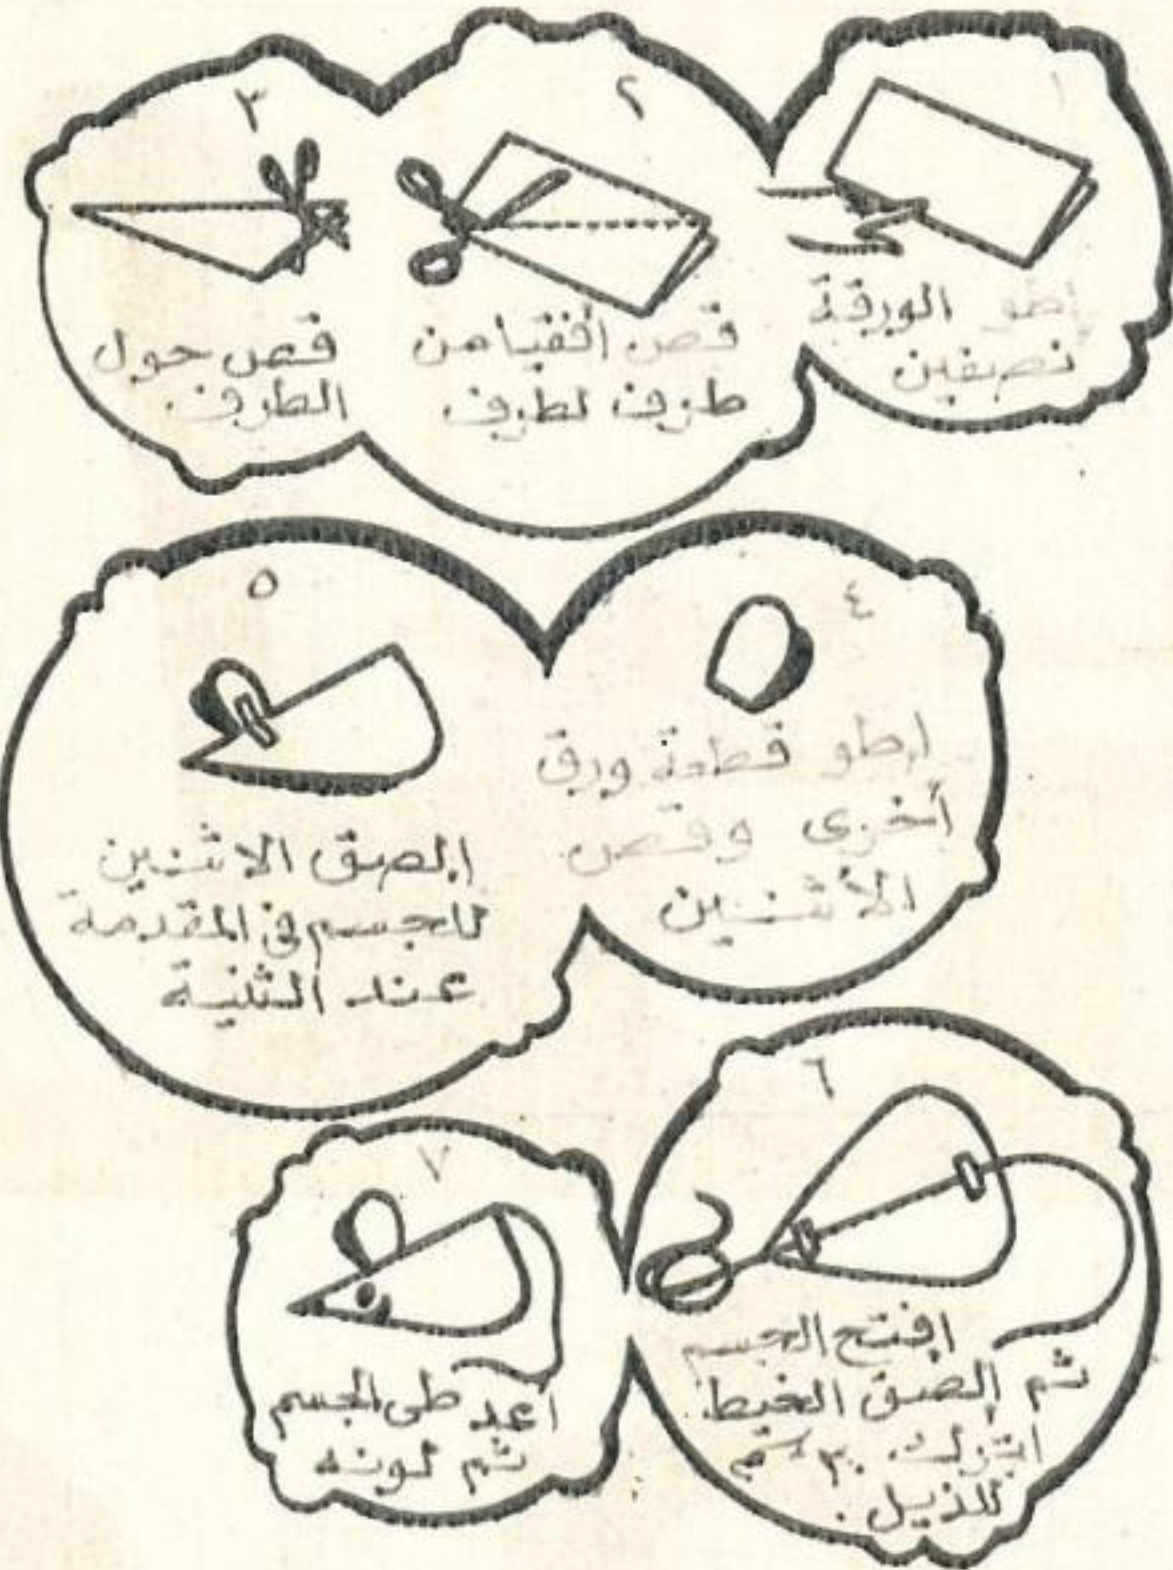 ١
إطو الورقة
نصفين
٢
قص أفقيا من
طرف لطرف
٣
قص حول
الطرف
٤
إطو قطعة ورق
أخرى وقص
الأثنين
٥
إلصق الاثنين
للجسم في المقدمة
عند الثنية
٦
افتح الجسم
ثم إلصق الخيط
اترك ٣٠ سم
للذيل .
٧
أعد طى الجسم
ثم لونه